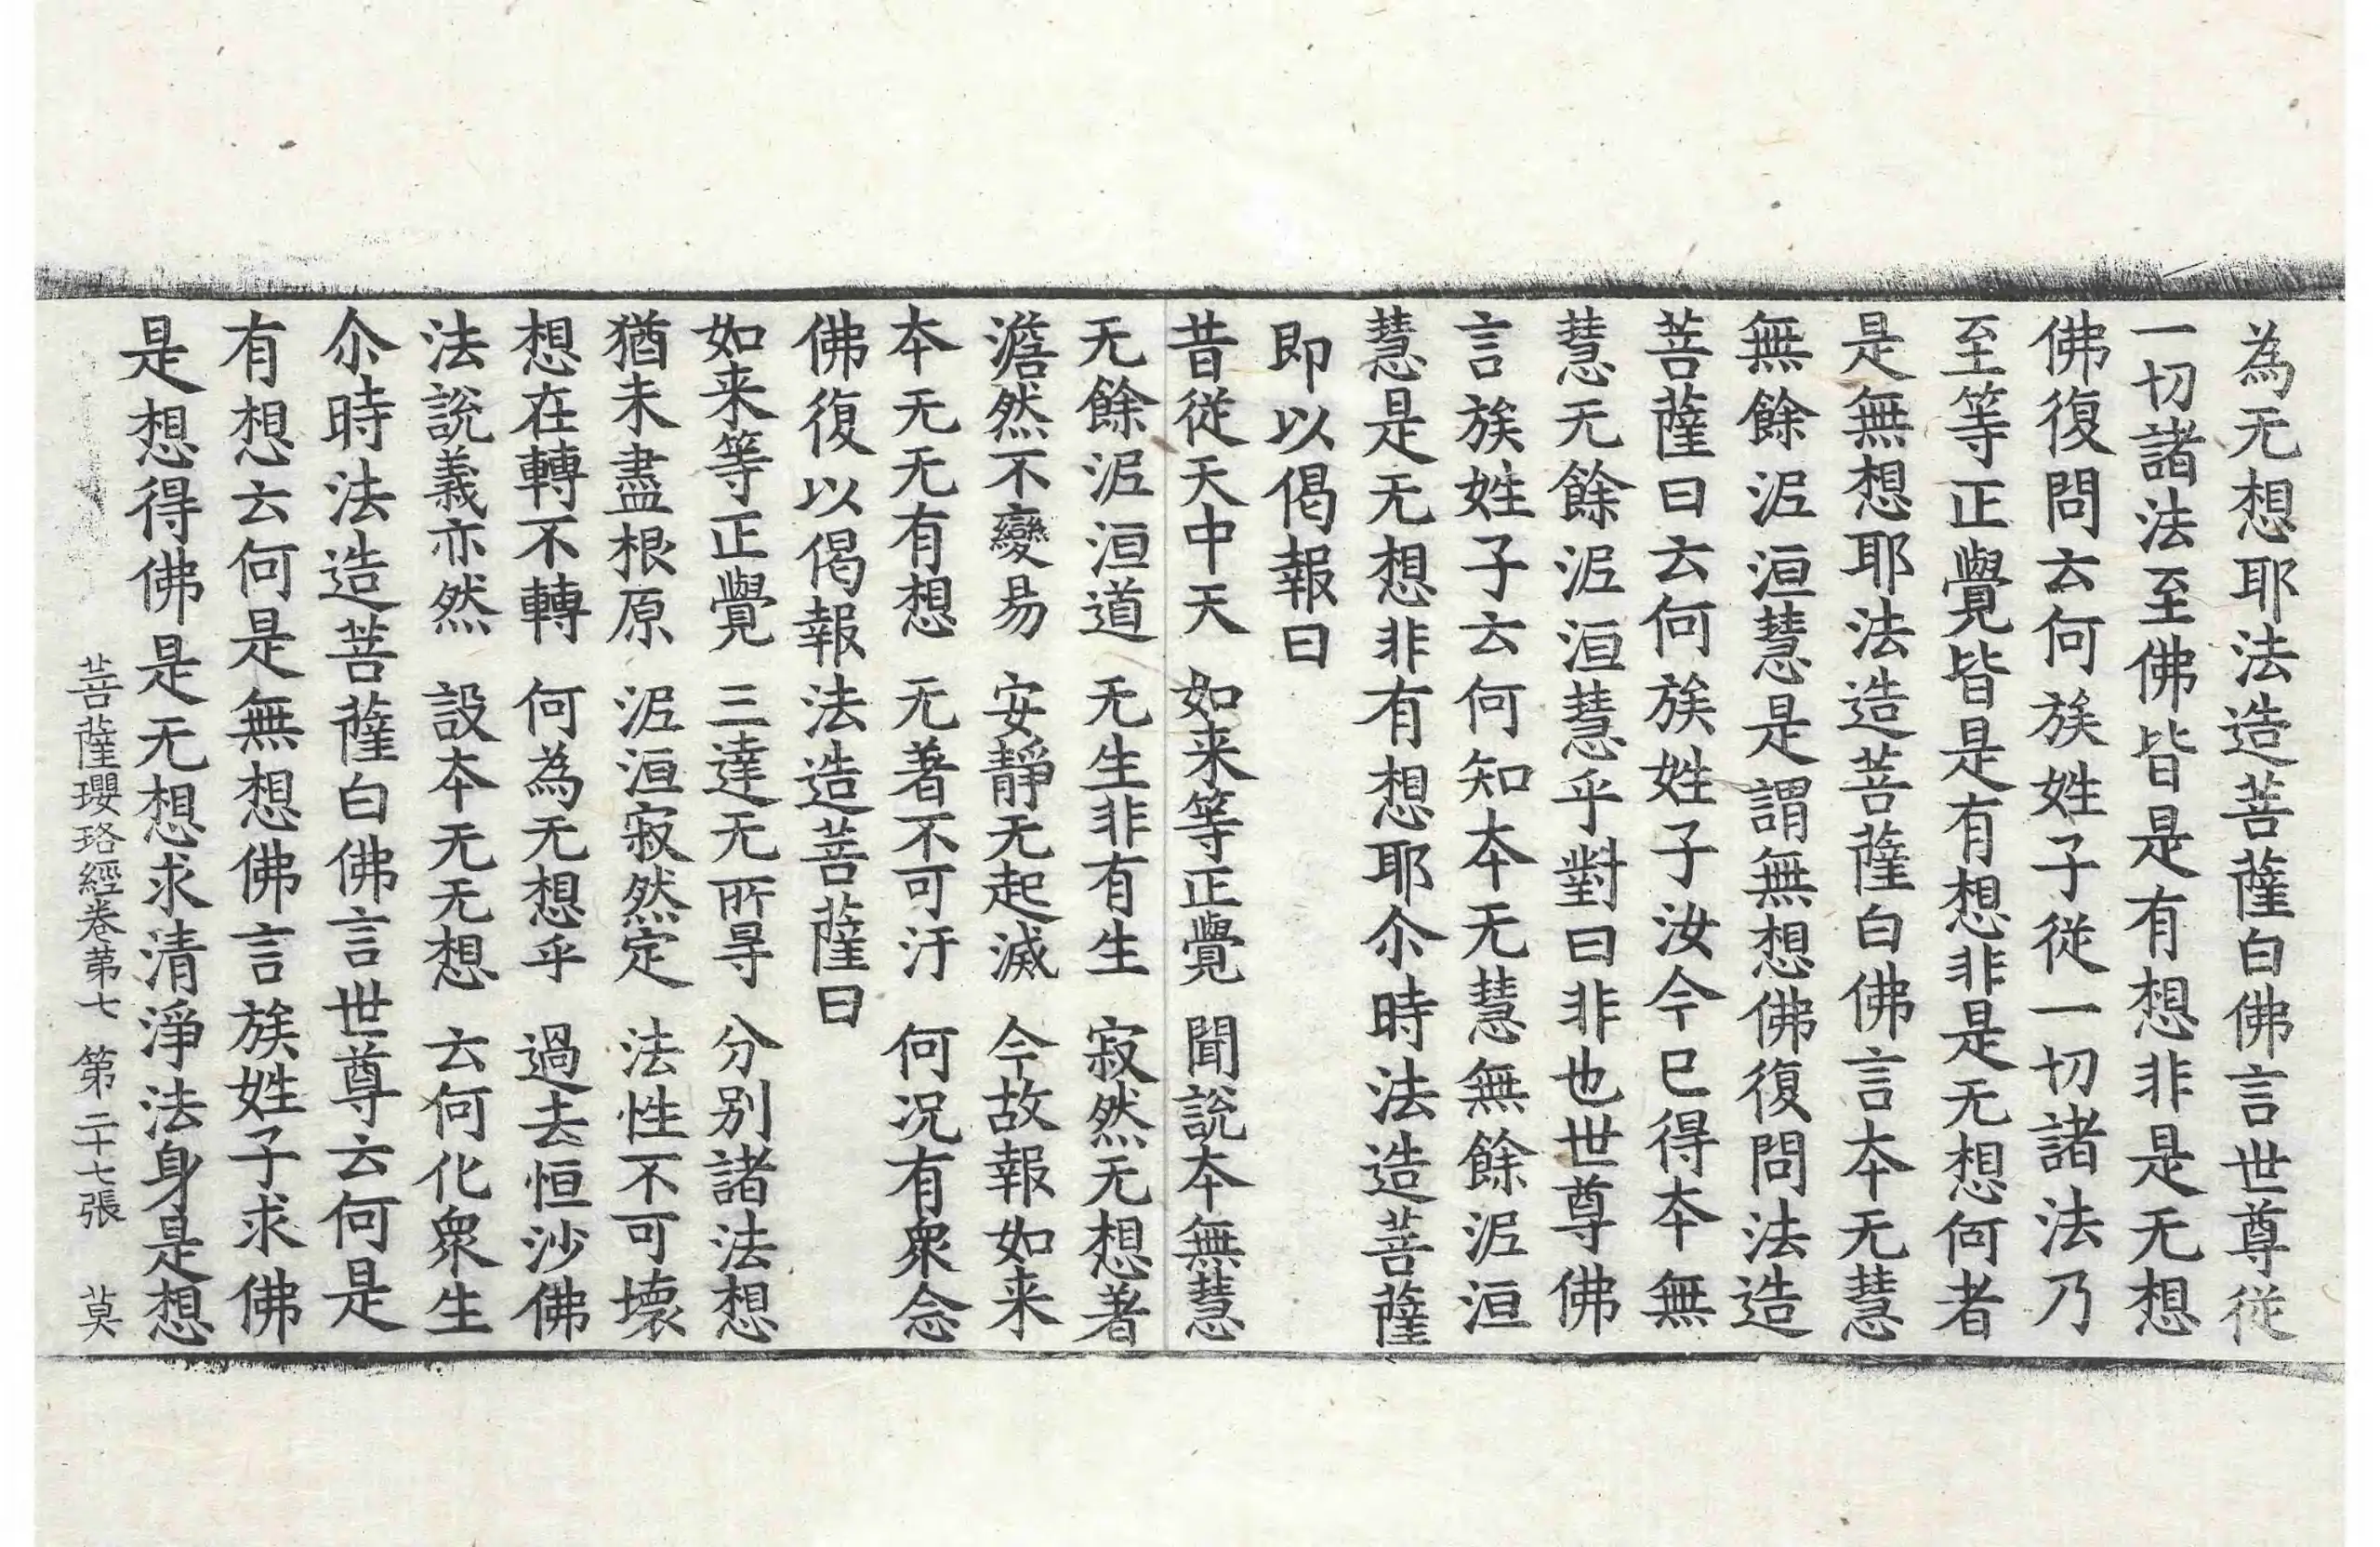 為无想耶法造菩薩白佛言世尊従
一切諸法至佛皆是有想非是无想
佛復問云何族姓子従一切諸法乃
至等正覺皆是有想非是无想何者
是無想耶法造菩薩白佛言本无慧
無餘泥洹慧是謂無想佛復問法造
菩薩曰云何族姓子汝今已得本無
慧无餘泥洹慧乎對曰非也世尊佛
言族姓子云何知本无慧無餘泥洹
慧是无想非有想耶尒時法造菩薩
即以偈報曰
昔従天中天 如来等正覺 聞說本無慧
无餘泥洹道 无生非有生 寂然无想著
澹然不變易 安靜无起滅 今故報如来
本无无有想 无著不可汙 何况有衆念
佛復以偈報法造菩薩曰
如来等正覺 三達无所㝵 分別諸法想
猶未盡根原 泥洹寂然定 法性不可壞
想在轉不轉 何為无想乎 過去恒沙佛
法說義亦然 設本无无想 云何化衆生
尒時法造菩薩白佛言世尊云何是
有想云何是無想佛言族姓子求佛
是想得佛是无想求清淨法身是想
菩薩瓔珞經卷苐七 第二十七張 莫